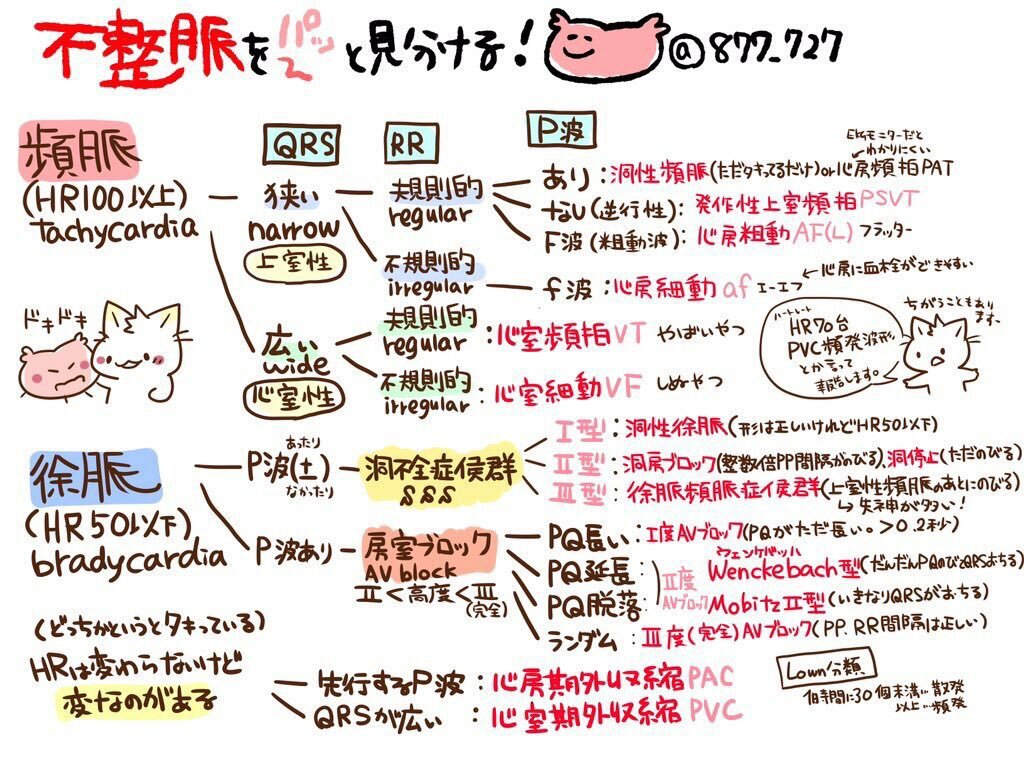 不整脈をパッと見分ける! @877_727
頻脈
(HR100以上)
tachycardia
QRS
RR
P波
狭い
narrow
上室性
規則的
regular
あり:洞性頻脈(ただタキってるだけ)or心房頻拍PAT
EKGモニターだと
わかりにくい
なし(逆行性):発作性上室頻拍PSVT
F波(粗動波):心房粗動AF(L)フラッター
不規則的
irregular
f波:心房細動af エーエフ
←心房に血栓ができやすい
広い
wide
心室性
規則的
regular
:心室頻拍VT やばいやつ
不規則的
irregular
:心室細動VF しぬやつ
ドキドキ
ハートレート
HR70台
PVC頻発波形
とか言って
報告します。
ちがうこともあり
ます。
徐脈
(HR50以下)
bradycardia
P波(±)
あったり
なかったり
洞不全症侯群
SSS
I型:洞性徐脈(形は正しいけれどHR50以下)
II型:洞房ブロック(整数倍PP間隔がのびる)、洞停止(ただのびる)
III型:徐脈頻脈症侯群(上室性頻脈のあとにのびる)
↳失神が多い!
P波あり
房室ブロック
AV block
II<高度<III
(完全)
PQ長い:I度AVブロック(PQがただ長い。>0.2秒)
PQ延長:
ウェンケバッハ
Wenckebach型(だんだんPQのびてQRSおちる)
II度
AVブロック
PQ脱落:Mobitz II型(いきなりQRSがおちる)
ランダム:III度(完全)AVブロック(PP.RR間隔は正しい)
(どっちかというとタキっている)
HRは変わらないけど
変なのがある
先行するP波:心房期外収縮PAC
QRSが広い:心室期外収縮PVC
Lown分類
1時間に30個未満…散発
以上…頻発